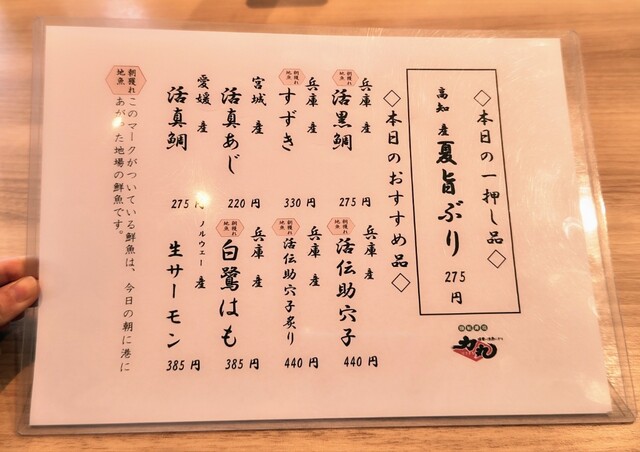 ◇本日の一押し品◇
高知 産
夏旨ぶり
275
円
◇本日のおすすめ品◇
朝獲れ
地魚
兵庫 産
活黒鯛
275 円
朝獲れ
地魚
兵庫 産
すずき
330 円
宮城 産
活真あじ
220 円
愛媛 産
活真鯛
275 円
朝獲れ
地魚
兵庫 産
活伝助穴子
440 円
朝獲れ
地魚
兵庫 産
活伝助穴子炙り
440 円
朝獲れ
地魚
兵庫 産
白鷺はも
385 円
ノルウェー 産
生サーモン
385 円
朝獲れ
地魚
このマークがついている鮮魚は、今日の朝に港に
あがった地場の鮮魚です。
力丸